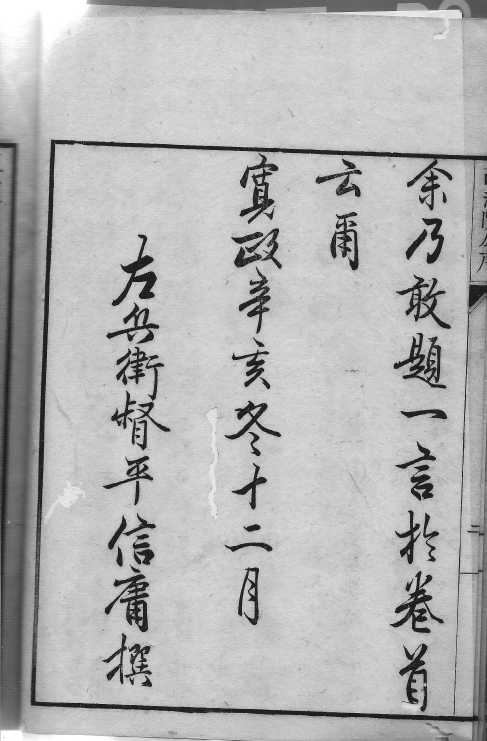 余乃敢題一言於卷首
云爾
寬政辛亥冬十二月
左兵衛督平信庸撰